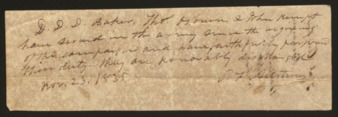 D. D. D. Baker, Tho. Osburn & John Kemp
have served in the army since the opening
of the campaign and have faithfully performed
their duty they are honorably discharged
Nov. 23, 1835